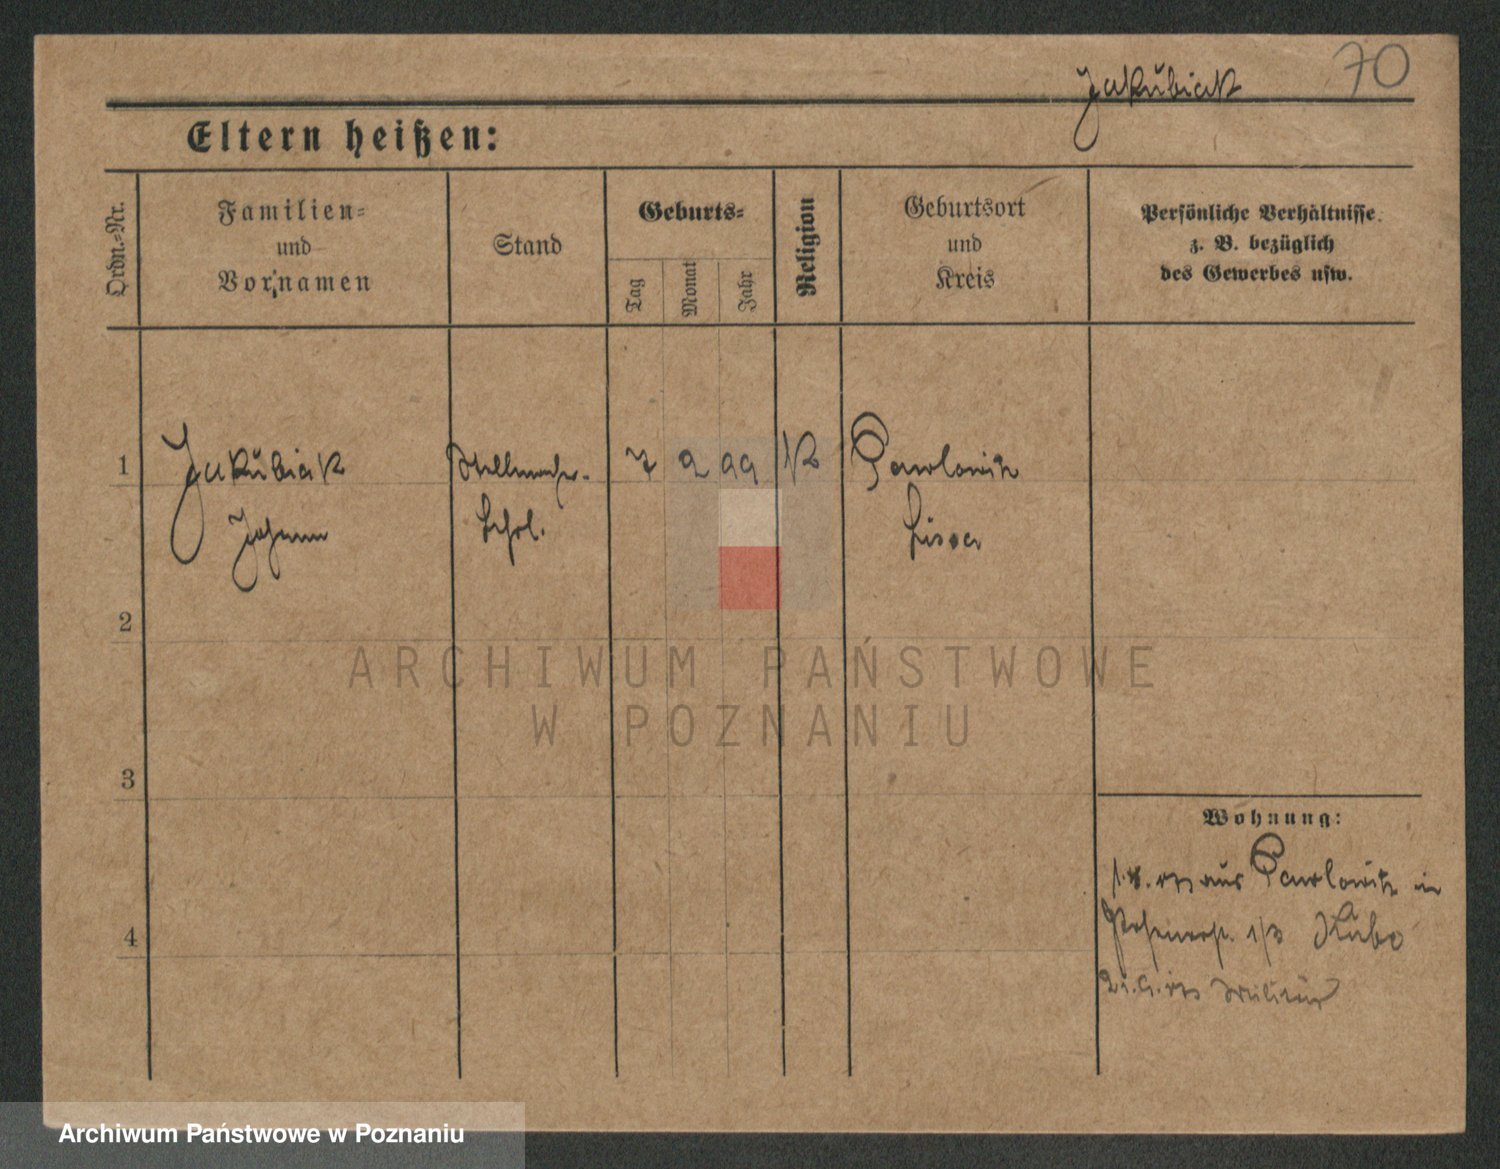 Jakubiak 70
Eltern heißen:
Ordn.-Nr.
Familien-
und
Vornamen
Stand
Geburts-
Tag
Monat
Jahr
Religion
Geburtsort
und
Kreis
Persönliche Verhältnisse
z. B. bezüglich
des Gewerbes usw.
1 Jakubiak Stellmacher- 7 2 99 K Pawlowitz
Johann Lehrl. Lissa
2
ARCHIWUM PAŃSTWOWE
W POZNANIU
3
Wohnung:
aus Pawlowitz in
4
Kubo
Militär
Archiwum Państwowe w Poznaniu